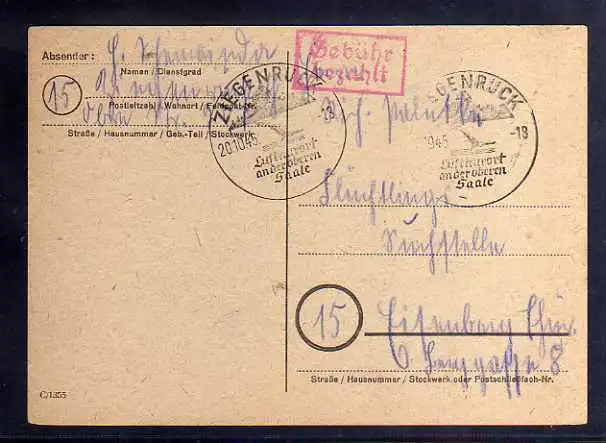 Absender:
Namen / Dienstgrad
15
Postleitzahl / Wohnort / Feldpost-Nr.
Straße / Hausnummer / Geb.-Teil / Stockwerk
Gebühr
bezahlt
ZIEGENRÜCK
20.10.45 -18
Luftkurort
an der oberen
Saale
EGENRÜCK
1045 -18
Luftkurort
an der oberen
Saale
Flüchtlings
Suchstelle
15
Eisenberg Thür.
Straße / Hausnummer / Stockwerk oder Postschließfach-Nr.
C/1355